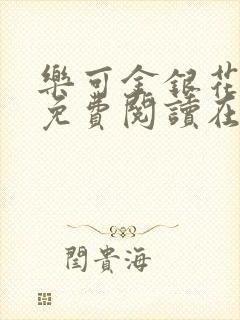 樂可金銀花
免費閱讀在
閆貴海